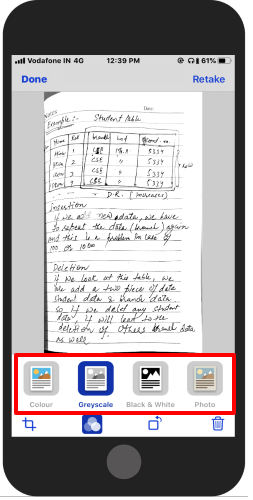 Vodafone IN 4G 12:39 PM 61%
Done Retake
Date:
Example:- Student table
Name Rol branch hod
1 CSE 5334
2 CSE " 5334
3 CSE " 5334
4 CSE " 5334
→ D.R. (increases)
Insertion
if we add new data, we have
to repeat the data (branch) again
and this is a problem in case of
100 or 1000
Deletion
if we look at this table, we
add a two pieces of data
student data & branch data
so if we delet any student
data, it will lead to the
deletion of others branch data
as well
Colour Greyscale Black & White Photo